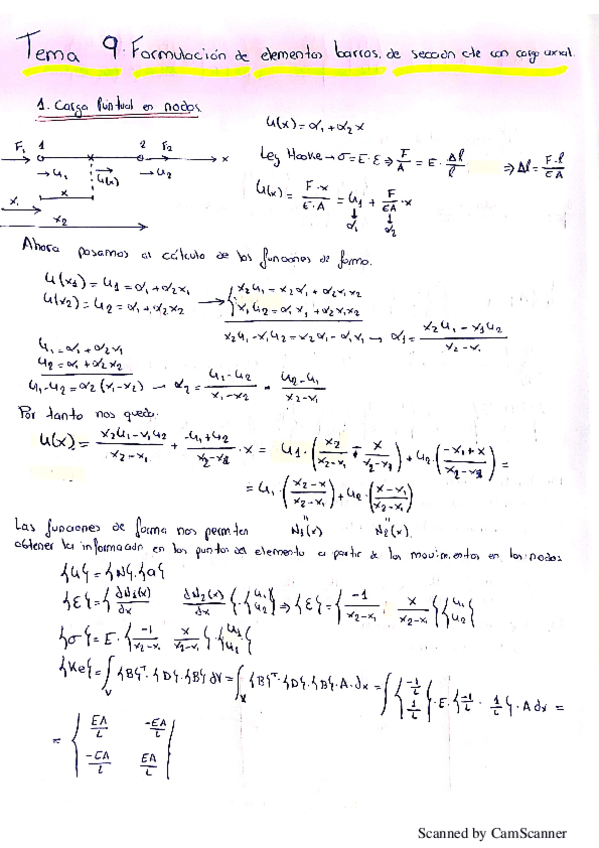 Tema 9. Formulación de elementos barras de sección cte con carga axial.
1. Carga Puntual en nodos
u(x) = α₁ + α₂x
F₁ 1 2 F₂ → x
→ u₁ → u(x) → u₂
x
x₁
x₂
Ley Hooke → σ = E·ε ⇒ F/A = E · Δl/l ⇒ Δl = F·l/EA
u(x) = F·x/E·A = u₁ + F/EA · x
↓ α₁ ↓ α₂
Ahora pasamos al cálculo de las funciones de forma.
u(x₁) = u₁ = α₁ + α₂x₁
u(x₂) = u₂ = α₁ + α₂x₂
→ { x₂u₁ = x₂α₁ + α₂x₁x₂
x₁u₂ = α₁x₁ + α₂x₁x₂
x₂u₁ - x₁u₂ = x₂α₁ - α₁x₁ → α₁ = (x₂u₁ - x₁u₂)/(x₂ - x₁)
u₁ = α₁ + α₂x₁
u₂ = α₁ + α₂x₂
u₁ - u₂ = α₂(x₁ - x₂) → α₂ = (u₁ - u₂)/(x₁ - x₂) = (u₂ - u₁)/(x₂ - x₁)
Por tanto nos queda:
u(x) = (x₂u₁ - x₁u₂)/(x₂ - x₁) + (-u₁ + u₂)/(x₂ - x₁) · x = u₁·(x₂/(x₂ - x₁) - x/(x₂ - x₁)) + u₂·((-x₁ + x)/(x₂ - x₁)) =
= u₁·((x₂ - x)/(x₂ - x₁)) + u₂·((x - x₁)/(x₂ - x₁))
" "
N₁(x) N₂(x)
Las funciones de forma nos permiten
obtener la información en los puntos del elemento a partir de los movimientos en los nodos
{u} = {N}·{a}
{ε} = {dN₁(x)/dx dN₂(x)/dx}·{u₁ u₂} ⇒ {ε} = {-1/(x₂ - x₁) x/(x₂ - x₁)}{u₁ u₂}
{σ} = E·{-1/(x₂ - x₁) x/(x₂ - x₁)}·{u₁ u₂}
{Ke} = ∫v {B}ᵀ·{D}·{B} dV = ∫x {B}ᵀ·{D}·{B}·A·dx = ∫{-1/L 1/L}·E·{-1/L · 1/L}·A dx =
= { EA/L -EA/L
-EA/L EA/L }
Scanned by CamScanner